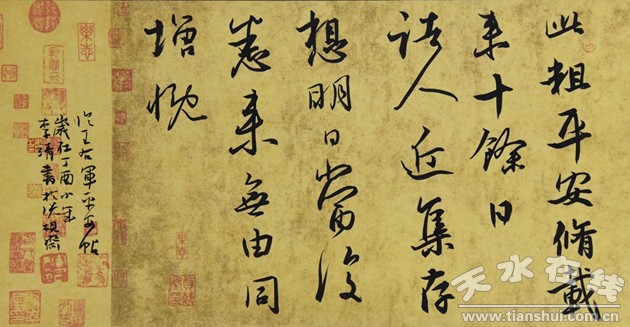 此粗平安脩載
来十餘日
諸人近集存
想明日當復
悉来無由同
增慨
臨王右軍平安帖
歲在丁酉小年
李書於硯齋
天水在线
www.tianshui.com.cn